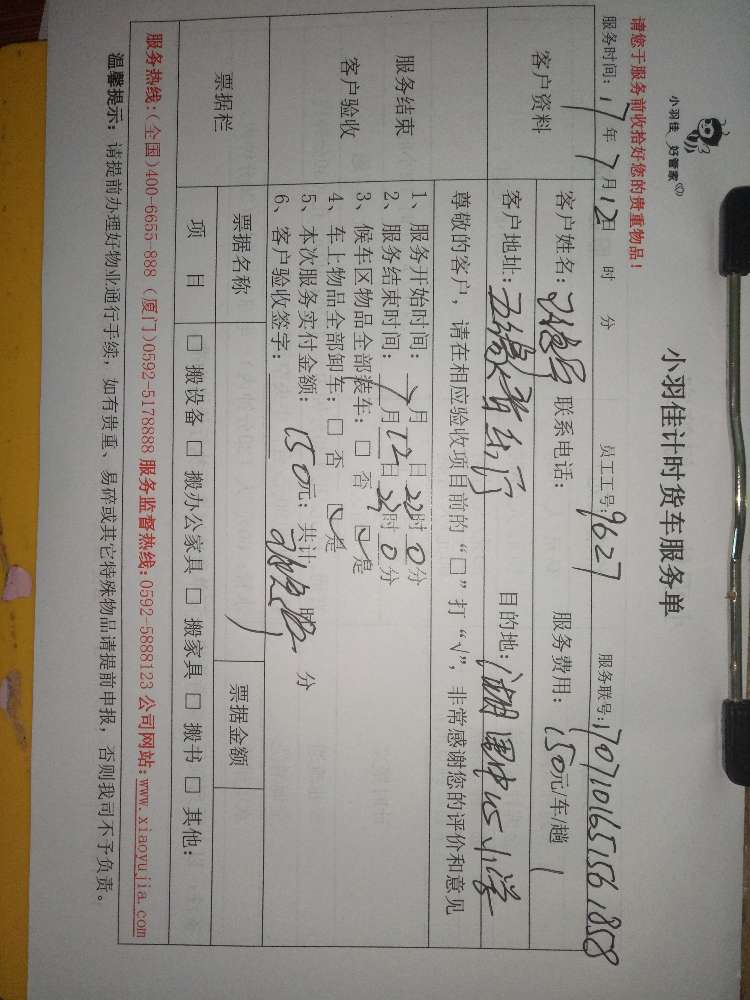 小羽佳 好管家
小羽佳计时货车服务单
请您于服务前收拾好您的贵重物品!
服务时间: 17年7月12日 时 分 员工工号: 9627 服务联号: 1707101651561858
客户资料
客户姓名: 联系电话: 服务费用: 150元/车/趟
客户地址: 目的地: 湖里中心小学
服务结束
客户验收
尊敬的客户,请在相应验收项目前的“□”打“√”,非常感谢您的评价和意见
1、服务开始时间: 7月12日22时0分
2、服务结束时间: 月 日23时0分
3、候车区物品全部装车: □ 否 ☑ 是
4、车上物品全部卸车: □ 否 ☑ 是
5、本次服务实付金额: 150元; 共计 时 分
6、客户验收签字:
票据栏
票据名称 票据金额
项 目 □ 搬设备 □ 搬办公家具 □ 搬家具 □ 搬书 □ 其他:
服务热线:(全国)400-6655-888 (厦门)0592-5178888 服务监督热线:0592-5888123 公司网站:www.xiaoyujia.com
温馨提示: 请提前办理好物业通行手续,如有贵重、易碎或其它特殊物品请提前申报,否则我司不予负责。